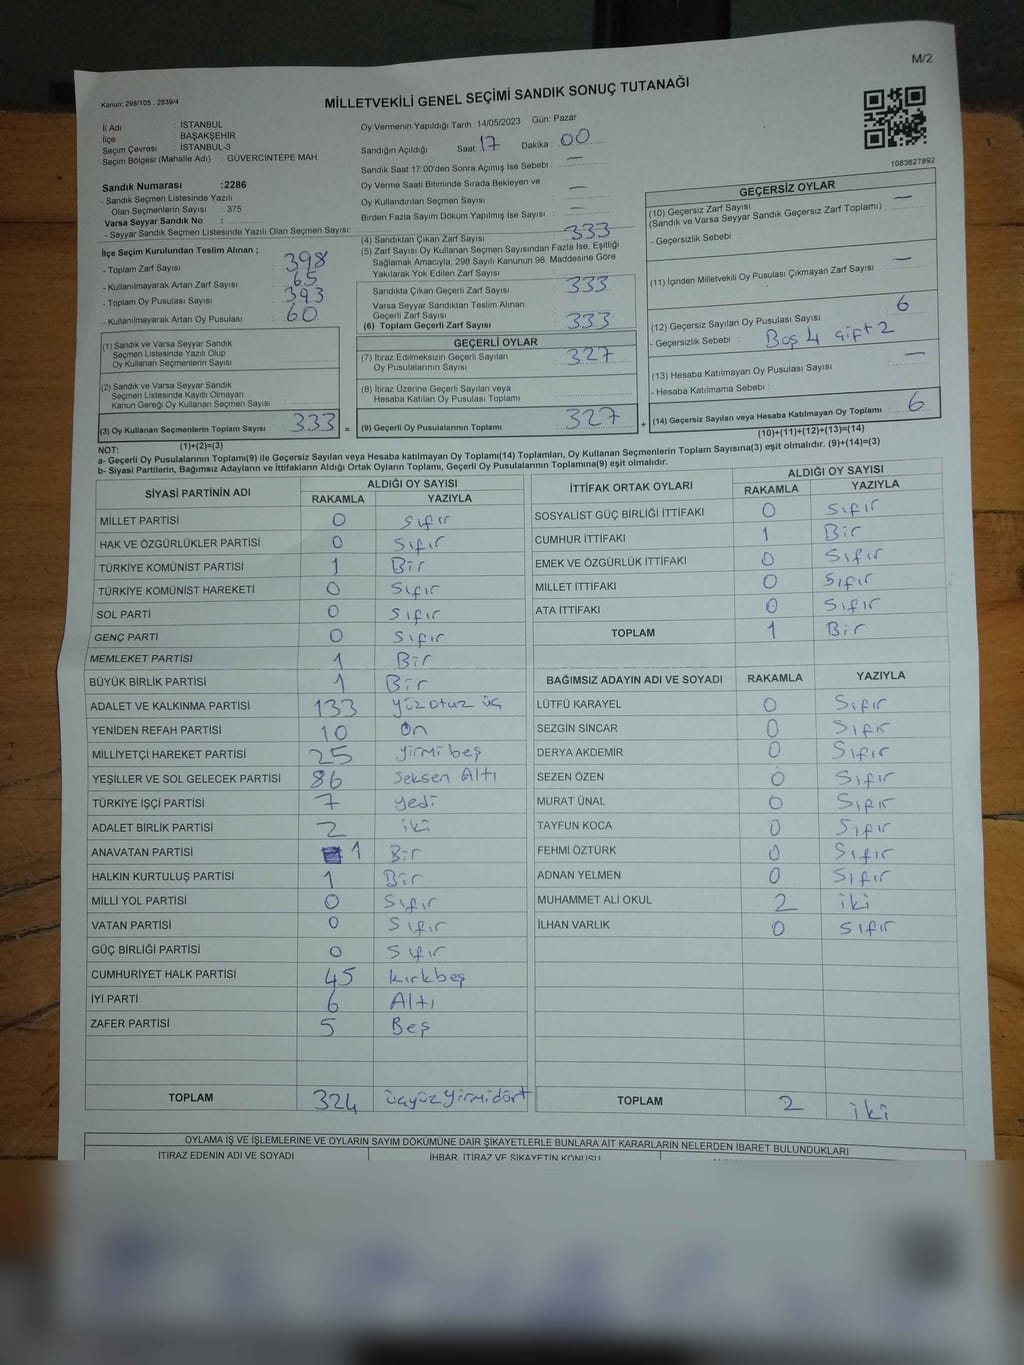 M/2
Kanun; 298/105 , 2839/4
MİLLETVEKİLİ GENEL SEÇİMİ SANDIK SONUÇ TUTANAĞI
İl Adı : İSTANBUL
İlçe : BAŞAKŞEHİR
Seçim Çevresi : İSTANBUL-3
Seçim Bölgesi (Mahalle Adı) : GÜVERCİNTEPE MAH.
Sandık Numarası :2286
- Sandık Seçmen Listesinde Yazılı
Olan Seçmenlerin Sayısı : 375
Varsa Seyyar Sandık No :
- Seyyar Sandık Seçmen Listesinde Yazılı Olan Seçmen Sayısı:
Oy Vermenin Yapıldığı Tarih : 14/05/2023 Gün: Pazar
Sandığın Açıldığı Saat: 17 Dakika : 00
Sandık Saat 17:00'den Sonra Açımış İse Sebebi : —
Oy Verme Saati Bitiminde Sırada Bekleyen ve
Oy Kullandırılan Seçmen Sayısı : —
Birden Fazla Sayım Döküm Yapılmış İse Sayısı : —
1083627892
İlçe Seçim Kurulundan Teslim Alınan ;
- Toplam Zarf Sayısı : 398
- Kullanılmayarak Artan Zarf Sayısı : 65
- Toplam Oy Pusulası Sayısı : 393
- Kullanılmayarak Artan Oy Pusulası : 60
(1) Sandık ve Varsa Seyyar Sandık
Seçmen Listesinde Yazılı Olup
Oy Kullanan Seçmenlerin Sayısı :
(2) Sandık ve Varsa Seyyar Sandık
Seçmen Listesinde Kayıtlı Olmayan
Kanun Gereği Oy Kullanan Seçmen Sayısı :
(3) Oy Kullanan Seçmenlerin Toplam Sayısı : 333 =
(1)+(2)=(3)
(4) Sandıktan Çıkan Zarf Sayısı : 333
(5) Zarf Sayısı Oy Kullanan Seçmen Sayısından Fazla İse, Eşitliği
Sağlamak Amacıyla; 298 Sayılı Kanunun 98. Maddesine Göre
Yakılarak Yok Edilen Zarf Sayısı :
Sandıkta Çıkan Geçerli Zarf Sayısı : 333
Varsa Seyyar Sandıktan Teslim Alınan
Geçerli Zarf Sayısı :
(6) Toplam Geçerli Zarf Sayısı : 333
GEÇERLİ OYLAR
(7) İtiraz Edilmeksizin Geçerli Sayılan
Oy Pusulalarının Sayısı : 327
(8) İtiraz Üzerine Geçerli Sayılan veya
Hesaba Katılan Oy Pusulası Toplamı :
(9) Geçerli Oy Pusulalarının Toplamı : 327 +
GEÇERSİZ OYLAR
(10) Geçersiz Zarf Sayısı
(Sandık ve Varsa Seyyar Sandık Geçersiz Zarf Toplamı) : —
- Geçersizlik Sebebi :
(11) İçinden Milletvekili Oy Pusulası Çıkmayan Zarf Sayısı : —
(12) Geçersiz Sayılan Oy Pusulası Sayısı : 6
- Geçersizlik Sebebi : Boş 4 çift 2
(13) Hesaba Katılmayan Oy Pusulası Sayısı : —
- Hesaba Katılmama Sebebi :
(14) Geçersiz Sayılan veya Hesaba Katılmayan Oy Toplamı : 6
(10)+(11)+(12)+(13)=(14)
NOT:
a- Geçerli Oy Pusulalarının Toplamı(9) ile Geçersiz Sayılan veya Hesaba katılmayan Oy Toplamı(14) Toplamları, Oy Kullanan Seçmenlerin Toplam Sayısına(3) eşit olmalıdır. (9)+(14)=(3)
b- Siyasi Partilerin, Bağımsız Adayların ve İttifakların Aldığı Ortak Oyların Toplamı, Geçerli Oy Pusulalarının Toplamına(9) eşit olmalıdır.
SİYASİ PARTİNİN ADI ALDIĞI OY SAYISI
RAKAMLA YAZIYLA
MİLLET PARTİSİ 0 Sıfır
HAK VE ÖZGÜRLÜKLER PARTİSİ 0 Sıfır
TÜRKİYE KOMÜNİST PARTİSİ 1 Bir
TÜRKİYE KOMÜNİST HAREKETİ 0 Sıfır
SOL PARTİ 0 Sıfır
GENÇ PARTİ 0 Sıfır
MEMLEKET PARTİSİ 1 Bir
BÜYÜK BİRLİK PARTİSİ 1 Bir
ADALET VE KALKINMA PARTİSİ 133 yüz otuz üç
YENİDEN REFAH PARTİSİ 10 On
MİLLİYETÇİ HAREKET PARTİSİ 25 yirmi beş
YEŞİLLER VE SOL GELECEK PARTİSİ 86 Seksen Altı
TÜRKİYE İŞÇİ PARTİSİ 7 yedi
ADALET BİRLİK PARTİSİ 2 iki
ANAVATAN PARTİSİ 1 Bir
HALKIN KURTULUŞ PARTİSİ 1 Bir
MİLLİ YOL PARTİSİ 0 Sıfır
VATAN PARTİSİ 0 Sıfır
GÜÇ BİRLİĞİ PARTİSİ 0 Sıfır
CUMHURİYET HALK PARTİSİ 45 kırkbeş
İYİ PARTİ 6 Altı
ZAFER PARTİSİ 5 Beş
TOPLAM 324 üçyüzyirmidört
İTTİFAK ORTAK OYLARI ALDIĞI OY SAYISI
RAKAMLA YAZIYLA
SOSYALİST GÜÇ BİRLİĞİ İTTİFAKI 0 Sıfır
CUMHUR İTTİFAKI 1 Bir
EMEK VE ÖZGÜRLÜK İTTİFAKI 0 Sıfır
MİLLET İTTİFAKI 0 Sıfır
ATA İTTİFAKI 0 Sıfır
TOPLAM 1 Bir
BAĞIMSIZ ADAYIN ADI VE SOYADI RAKAMLA YAZIYLA
LÜTFÜ KARAYEL 0 Sıfır
SEZGİN SİNCAR 0 Sıfır
DERYA AKDEMİR 0 Sıfır
SEZEN ÖZEN 0 Sıfır
MURAT ÜNAL 0 Sıfır
TAYFUN KOCA 0 Sıfır
FEHMİ ÖZTÜRK 0 Sıfır
ADNAN YELMEN 0 Sıfır
MUHAMMET ALİ OKUL 2 iki
İLHAN VARLIK 0 Sıfır
TOPLAM 2 iki
OYLAMA İŞ VE İŞLEMLERİNE VE OYLARIN SAYIM DÖKÜMÜNE DAİR ŞİKAYETLERLE BUNLARA AİT KARARLARIN NELERDEN İBARET BULUNDUKLARI
İTİRAZ EDENİN ADI VE SOYADI İHBAR, İTİRAZ VE ŞİKAYETİN KONUSU